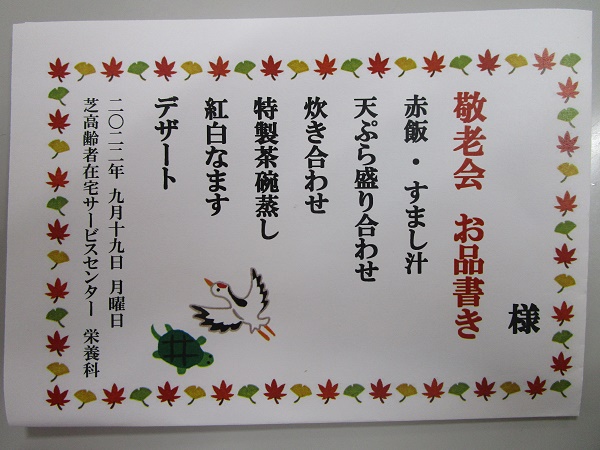 様
敬老会 お品書き
赤飯・すまし汁
天ぷら盛り合わせ
炊き合わせ
特製茶碗蒸し
紅白なます
デザート
二〇二二年 九月十九日 月曜日
芝高齢者在宅サービスセンター 栄養科